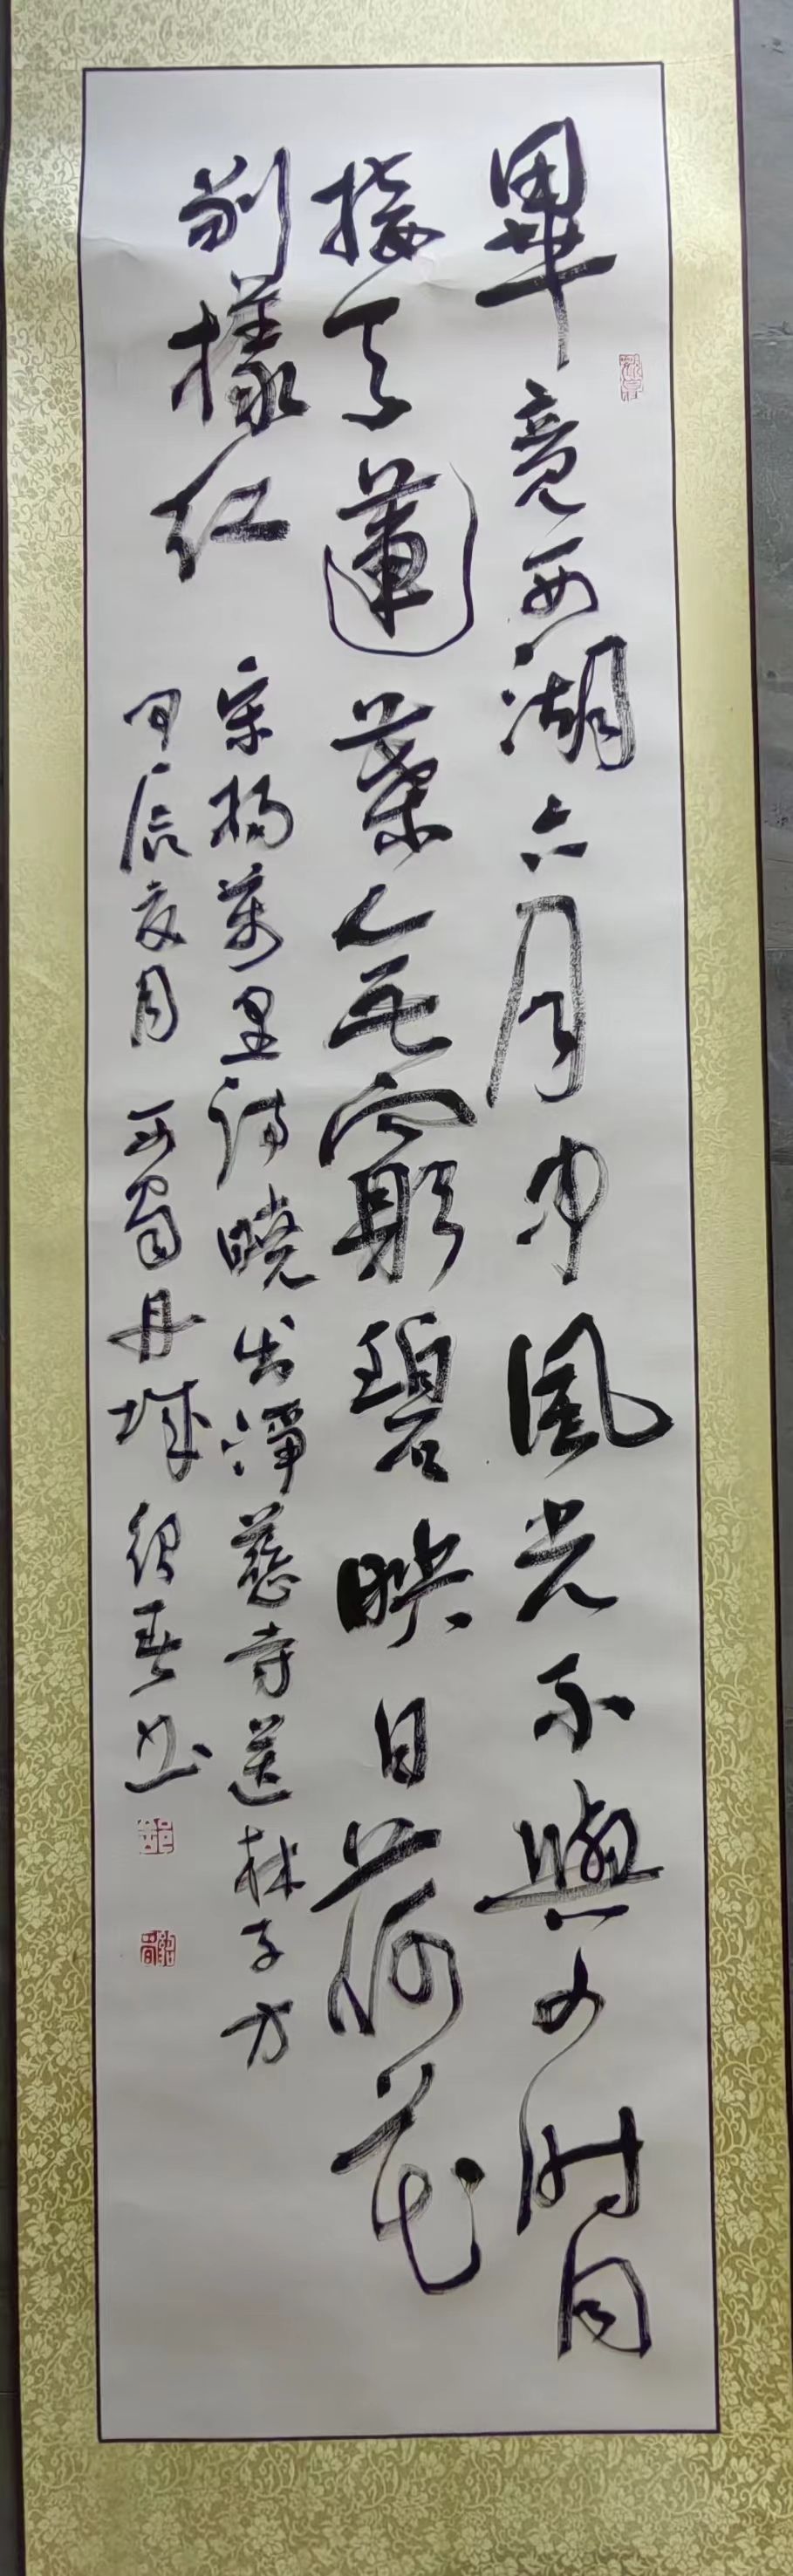 畢竟西湖六月中風光不與四时同
接天蓮葉無窮碧映日荷花
别樣红
宋楊萬里詩曉出淨慈寺送林子方
甲辰夏月 西蜀丹城 绍春书